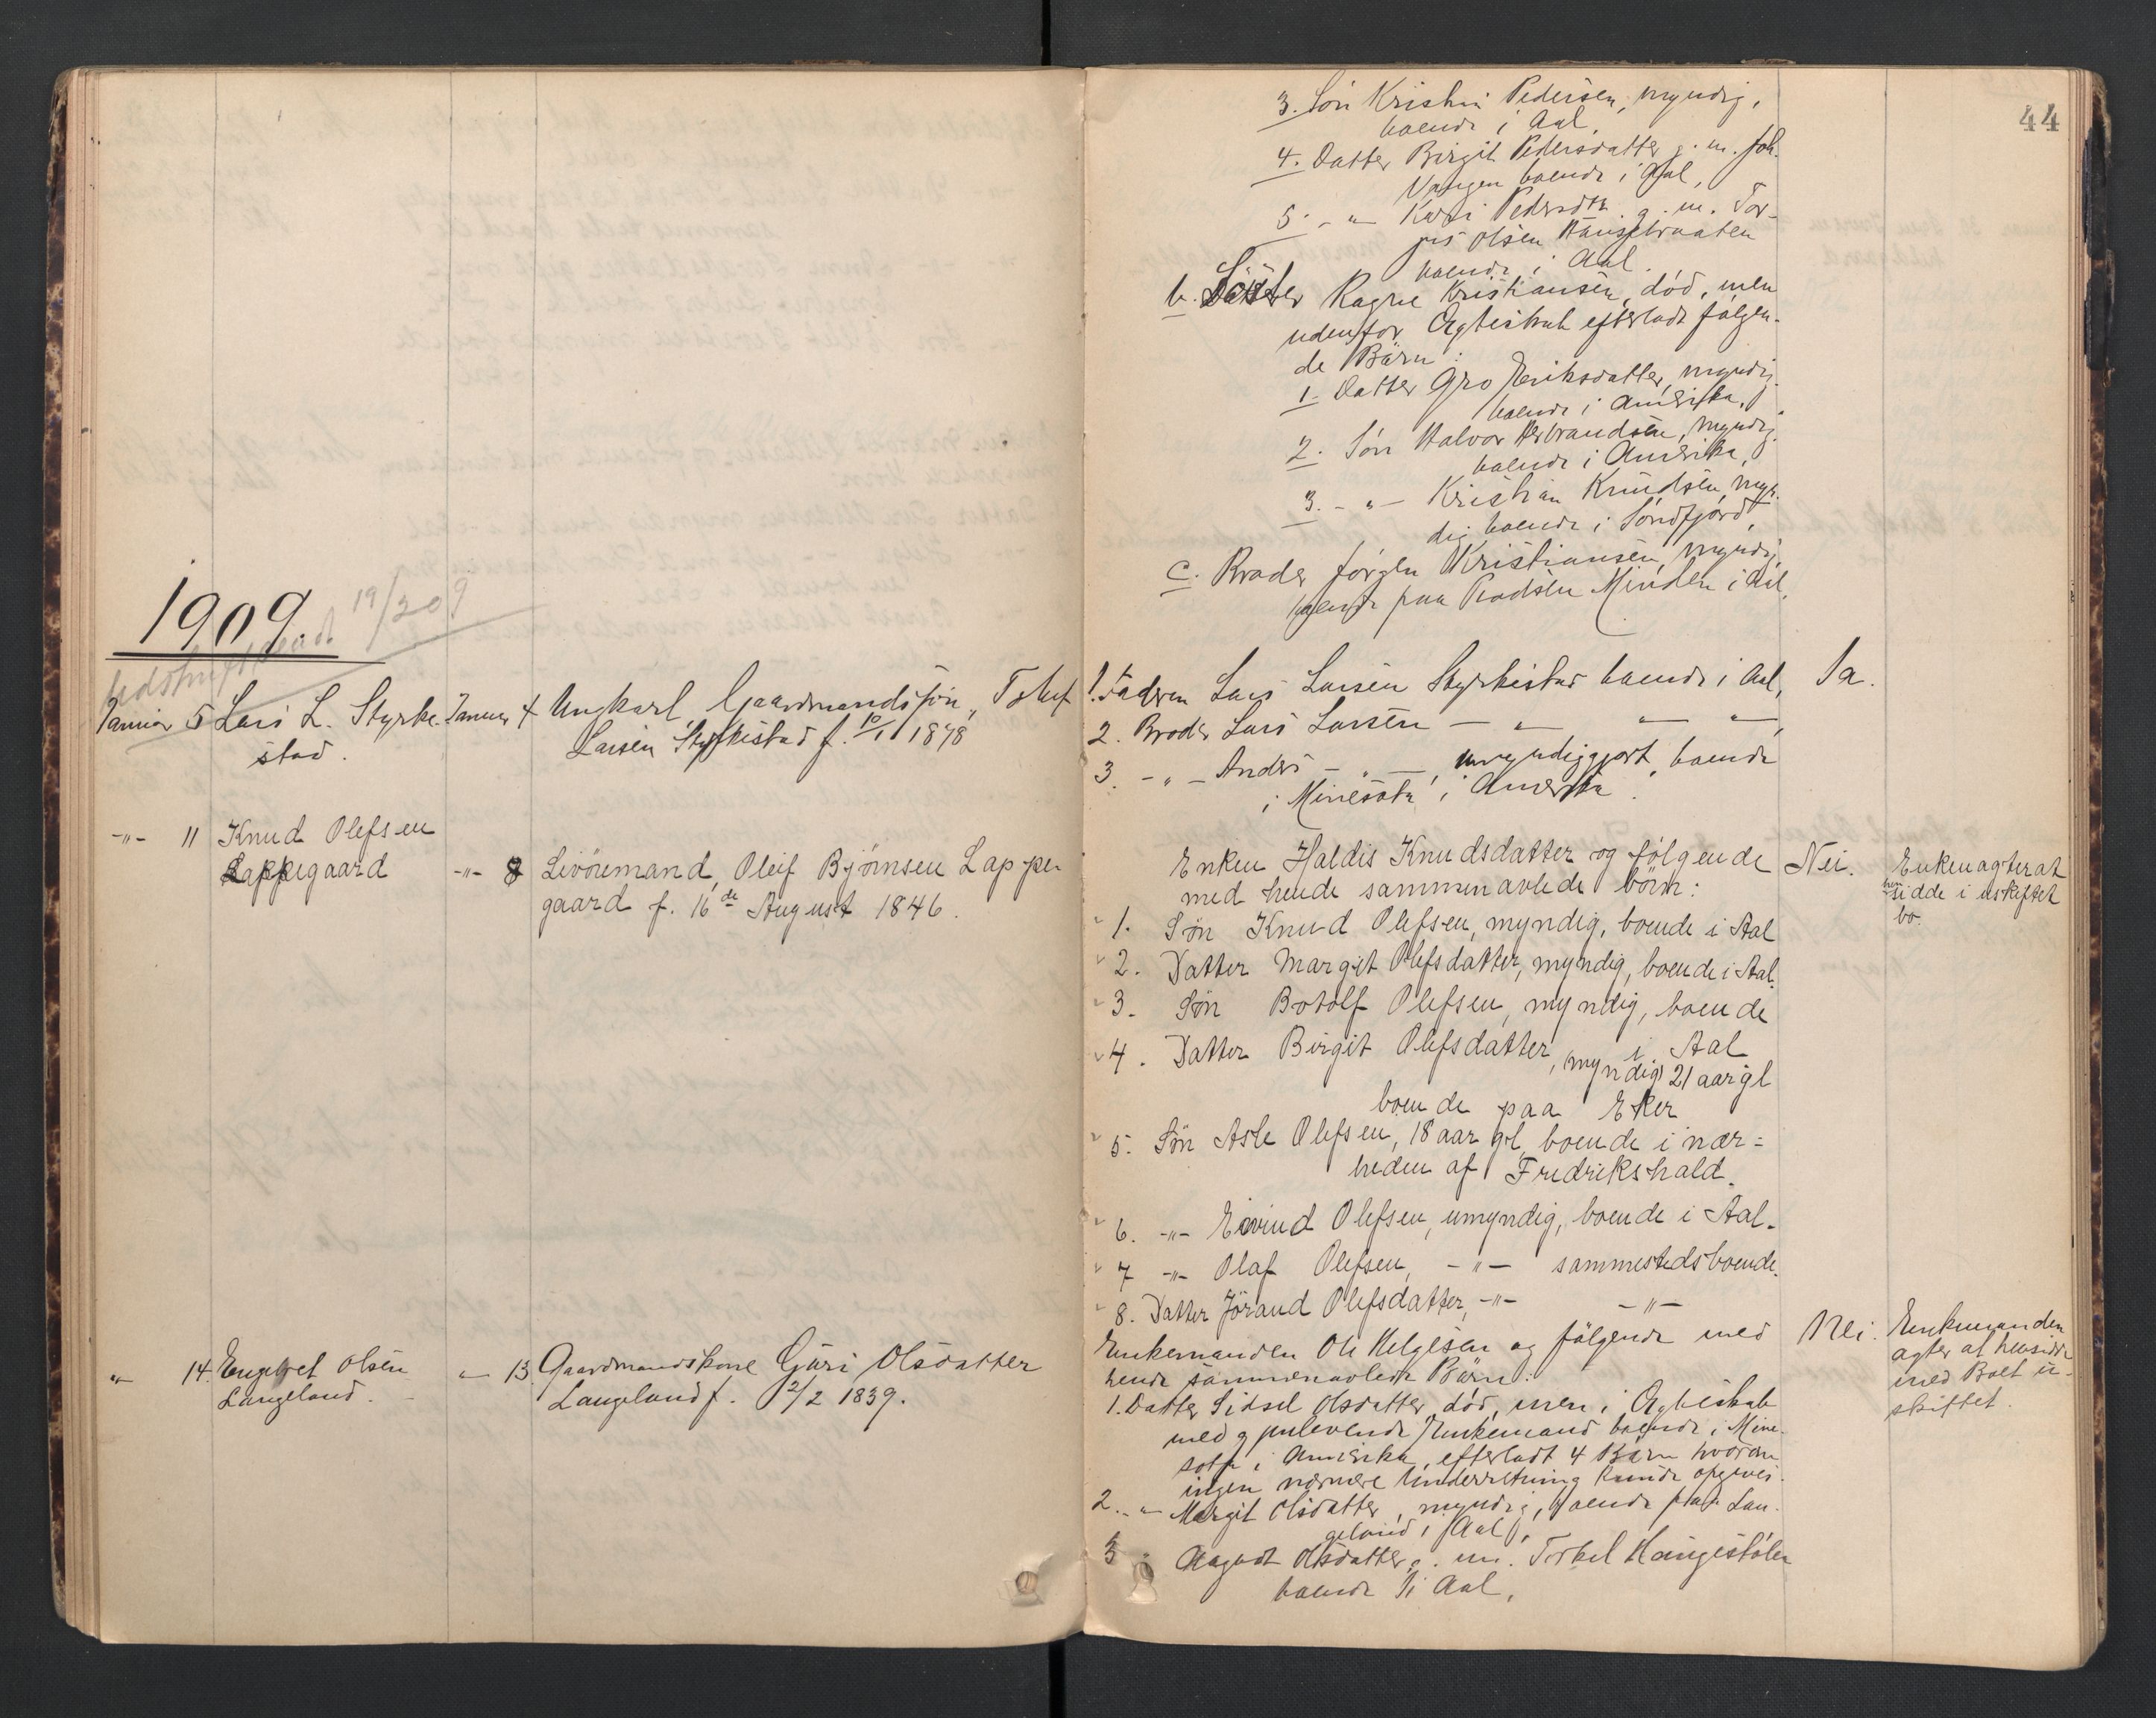 44
3. Søn Kristen Pedersen, myndig,
boende i Aal,
4. Datter Birgit Pedersdatter g. m. Joh.
Vangen boende i Aal,
5. - " - Kari Pedersdtr. g. m. Tor-
jus Olsen
boende i Aal.
b. Søster Ragne Kristiansen, død, men
udenfor Ægteskab efterladt følgen-
de Børn:
1. Datter Gro Eriksdatter, myndig
boende i Amerika,
2. Søn Halvor Herbrandsen, myndig
boende i Amerika,
3. - " - Kristian Knudsen, myn-
dig boende i Søndfjord,
c. Broder Jørgen Kristiansen, myndig,
boende paa Pladsen Minden i Aal.
1909.
19/2 09
Januar 5 Lars L. Styrke- Januar 4 Ungkarl, Gaardmandssøn, Tolef 1. Faderen Lars Larsen Styrkestad boende i Aal, Ja.
stad. Larsen Styrkestad f. 10/1 1878 2. Broder Lars Larsen - " - " - " -,
3. - " - Anders - " -, umyndiggjort, boende
i Minesota i Amerika.
-"- 11 Knud Olefsen
Lappegaard -"- 8 Livöremand, Oleif Bjørnsen Lappe-
gaard f. 16de August 1846.
Enken Haldis Knudsdatter og følgende Nei. Enken agter at
med hende sammenavlede børn: hensidde i uskiftet
bo.
1. Søn Knud Olefsen, myndig, boende i Aal
2. Datter Margit Olefsdatter, myndig, boende i Aal.
3. Søn Botolf Olefsen, myndig, boende
i Aal
4. Datter Birgit Olefsdatter, myndig 21 aar gl
boende paa Eker
5. Søn Asle Olefsen, 18 aar gl, boende i nær-
heden af Fredrikshald.
6. -"- Eivind Olefsen, umyndig, boende i Aal.
7 -"- Olaf Olefsen, -"- sammesteds boende.
8. Datter Jörand Olefsdatter, -"- -"-
" 14. Engebret Olsen " 13. Gaardmandskone Guri Olsdatter
Langeland. Langeland f. 12/2 1839.
Enkemanden Ole Helgesen og følgende med Nei. Enkemanden
hende sammenavlede Børn: agter at hensidde
med Boet u-
skiftet.
1. Datter Sidsel Olsdatter, død, men i Ægteskab
med gjenlevende Enkemand boende i Mine-
sota i Amerika, efterladt 4 Børn hvorom
ingen nærmere Underretning kunde opgives.
2. - " - Margit Olsdatter, myndig, boende paa Lan-
geland i Aal,
3 " Aagodt Olsdatter g. m. Torkel Haugestølen
boende i Aal,